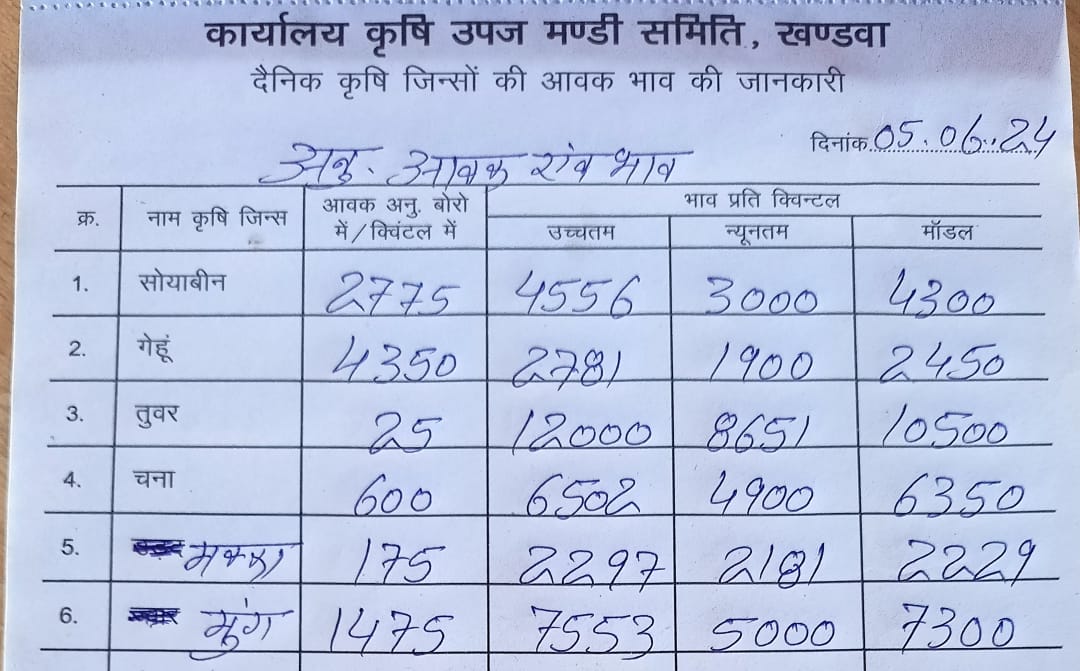 कार्यालय कृषि उपज मण्डी समिति, खण्डवा
दैनिक कृषि जिन्सों की आवक भाव की जानकारी
दिनांक 05.06.24
अनु. आवक एंव भाव
क्र. नाम कृषि जिन्स आवक अनु. बोरो में/क्विंटल में भाव प्रति क्विन्टल
उच्चतम न्यूनतम मॉडल
1. सोयाबीन 2775 4556 3000 4300
2. गेहूं 4350 2781 1900 2450
3. तुवर 25 12000 8651 10500
4. चना 600 6502 4900 6350
5. मक्का 175 2297 2181 2229
6. मुंग 1475 7553 5000 7300